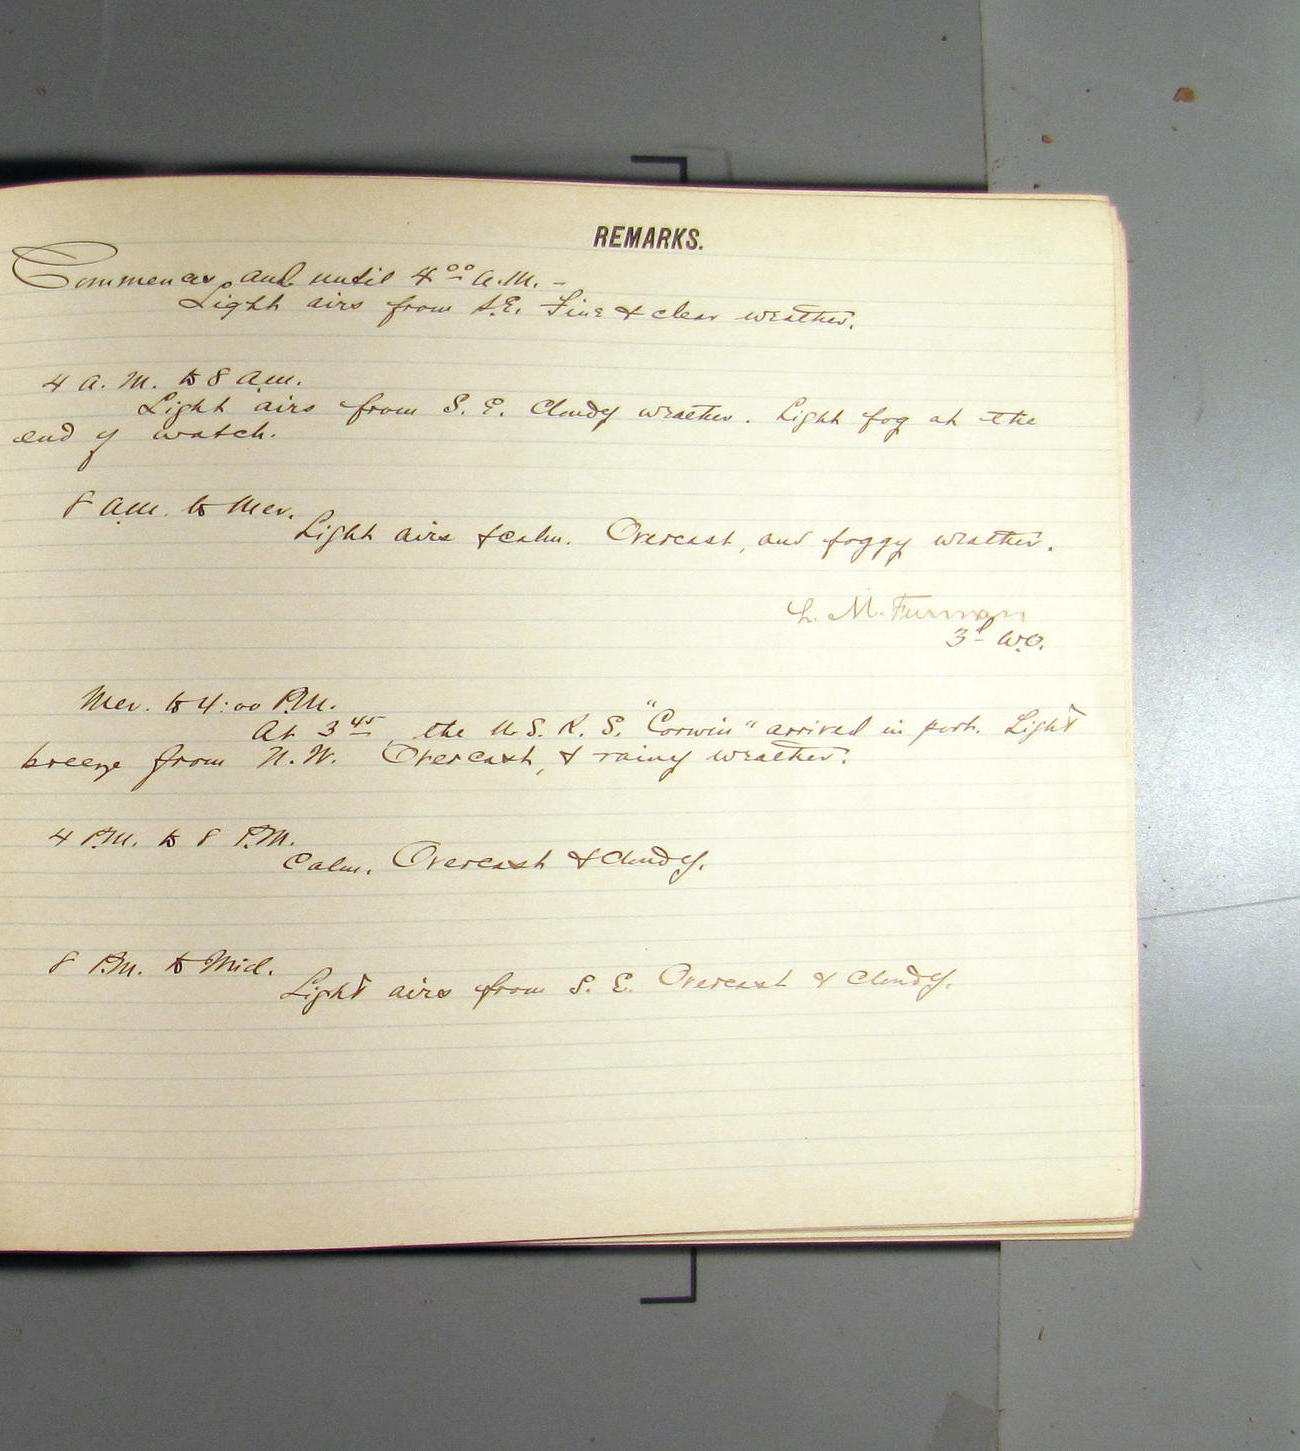 REMARKS.
Commences, and until 4 00 A.M. -
Light airs from S.E. Fine & clear weather.
4 A. M. to 8 A.M.
Light airs from S. E. Cloudy weather. Light fog at the
end of watch.
8 A.M. to Mer.
Light airs & calm. Overcast, and foggy weather.
M. Furman
3d W.O.
Mer. to 4:00 P.M.
At 3 45, the U.S. R. S. "Corwin" arrived in port. Light
breeze from N.W. Overcast, & rainy weather.
4 P.M. to 8 P.M.
Calm. Overcast & cloudy.
8 P.M. to Mid.
Light airs from S. E. Overcast & cloudy.